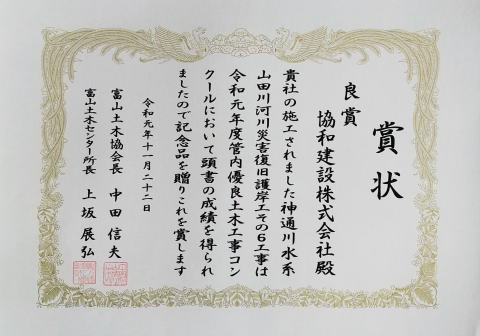 賞状
良賞
協和建設株式会社殿
貴社の施工されました神通川水系
山田川河川災害復旧護岸工その6工事は
令和元年度管内優良土木工事コン
クールにおいて頭書の成績を得られ
ましたので記念品を贈りこれを賞します
令和元年十一月二十二日
富山土木協会長 中田信夫
富山土木センター所長 上坂展弘